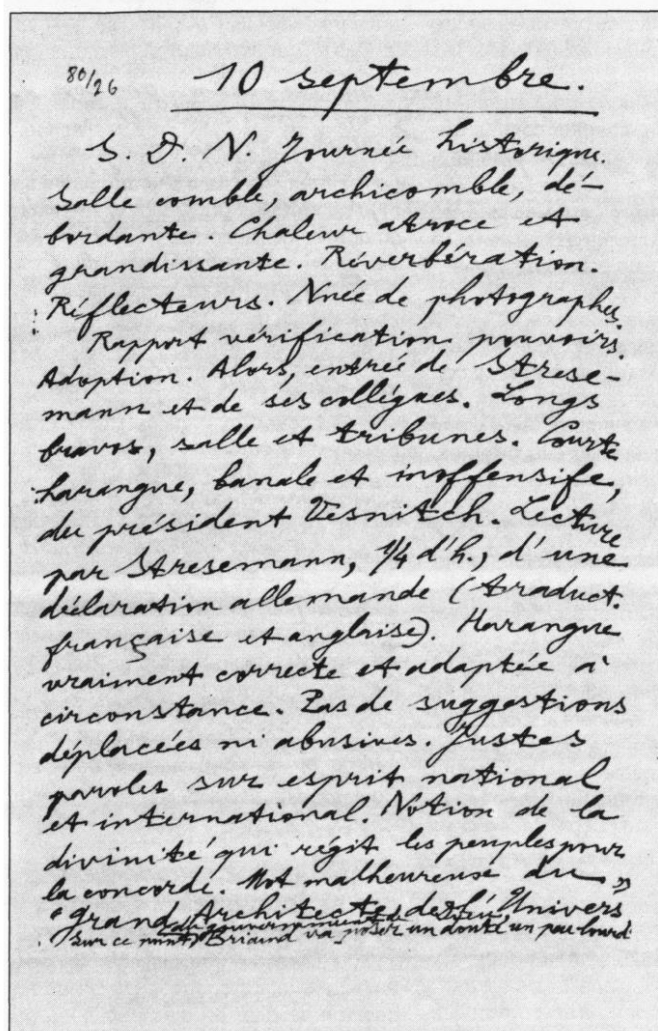 80/26
10 septembre.
S. D. N. Journée historique.
Salle comble, archicomble, dé-
bordante. Chaleur atroce et
grandissante. Réverbération.
Réflecteurs. Nuée de photographes.
Rapport vérification pouvoirs.
Adoption. Alors, entrée de Strese-
mann et de ses collègues. Longs
bravos, salle et tribunes. Courte
harangue, banale et inoffensife,
du président Vesnitch. Lecture
par Stresemann, 1/4 d'h., d'une
déclaration allemande (traduct.
française et anglaise). Harangue
vraiment correcte et adaptée à
circonstance. Pas de suggestions
déplacées ni abusives. Justes
paroles sur esprit national
et international. Notion de la
divinité qui régit les peuples pour
la concorde. Mot malheureuse du
"Grand Architecte de l'Univers"
du gouvernement de Dieu,
Sur ce point, Briand va poser un doute un peu lourd.